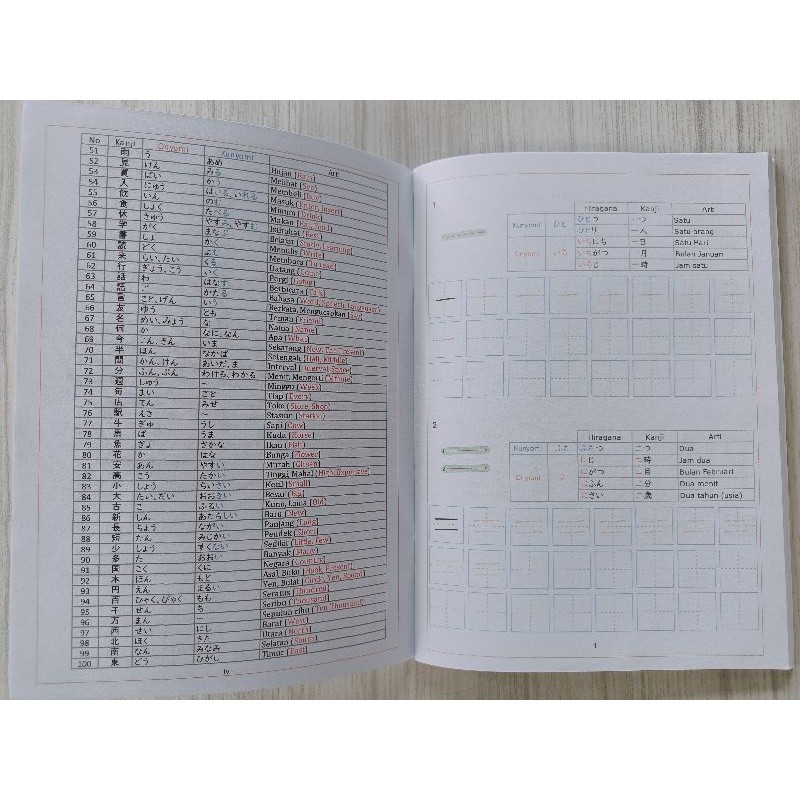 No Kanji Onyomi Kunyomi Arti
51 雨 う あめ Hujan (Rain)
52 見 けん みる Melihat (See)
53 買 ばい かう Membeli (Buy)
54 入 にゅう はいる、いれる Masuk (Enter, Insert)
55 飲 いん のむ Minum (Drink)
56 食 しょく たべる Makan (Eat, Food)
57 休 きゅう やすみ、やすむ Istirahat (Rest)
58 学 がく まなぶ Belajar (Study, Learning)
59 書 しょ かく Menulis (Write)
60 読 どく よむ Membaca
61 来 らい、たい くる Datang (Come)
62 行 ぎょう、こう いく Pergi (Going)
63 話 わ はなす Berbicara (Talk)
64 語 ご かたる Bahasa (Word, Speech, Language)
65 言 こと、げん いう Berkata, Mengucapkan (Say)
66 友 ゆう とも Teman (Friend)
67 名 めい、みょう な Nama (Name)
68 何 か なに、なん Apa (What)
69 今 こん、きん いま Sekarang (Now, The Present)
70 半 はん なかば Setengah (Half, Middle)
71 間 かん、けん あいだ、ま Interval (Interval Space)
72 分 ふん、ぶん わける、わかる Menit, Mengerti (Minute)
73 週 しゅう – Minggu (Week)
74 毎 まい ごと Tiap (Every)
75 店 てん みせ Toko (Store, Shop)
76 駅 えき – Stasiun (Station)
77 牛 ぎゅ うし Sapi (Cow)
78 馬 ば うま Kuda (Horse)
79 魚 ぎょ さかな Ikan (Fish)
80 花 か はな Bunga (Flower)
81 安 あん やすい Murah (Cheap)
82 高 こう たかい Tinggi, Mahal (High, Expensive)
83 小 しょう ちいさい Kecil (Small)
84 大 たい、だい おおきい Besar (Big)
85 古 こ ふるい Kuno, Lama (Old)
86 新 しん あたらしい Baru (New)
87 長 ちょう ながい Panjang (Long)
88 短 たん みじかい Pendek (Short)
89 少 しょう すくない Sedikit (Little, Few)
90 多 た おおい Banyak (Many)
91 国 こく くに Negara (Country)
92 本 ほん もと Asal, Buku (Book, Present)
93 円 えん まるい Yen, Bulat (Circle, Yen, Round)
94 百 ひゃく、びゃく もも Seratus (Hundred)
95 千 せん ち Seribu (Thousand)
96 万 まん – Sepuluh ribu (Ten Thousand)
97 西 せい にし Barat (West)
98 北 ほく きた Utara (North)
99 南 なん みなみ Selatan (South)
100 東 どう ひがし Timur (East)
iv
1
Hiragana Kanji Arti
Kunyomi ひと ひとつ 一つ Satu
ひとり 一人 Satu orang
Onyomi いち いちにち 一日 Satu Hari
いちがつ 一月 Bulan Januari
いちじ 一時 Jam satu
2
Hiragana Kanji Arti
Kunyomi ふた ふたつ 二つ Dua
Onyomi に にじ 二時 Jam dua
にがつ 二月 Bulan Februari
にふん 二分 Dua menit
にさい 二歳 Dua tahun (usia)
1